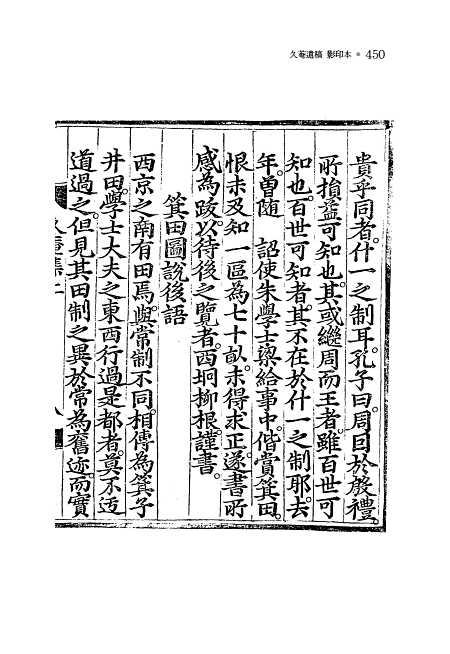 久菴遺稿 影印本 • 450
貴乎同者。什一之制耳。孔子曰。周因於殷禮。
所損益可知也。其或繼周而王者。雖百世可
知也。百世可知者。其不在於什一之制耶。去
年。曾隨 詔使朱學士梁給事中。偕賞箕田。
恨未及知一區為七十畝。未得求正。遂書所
感為跋。以待後之覽者。西坰柳根謹書。
箕田圖說後語
西京之南有田焉。與常制不同。相傳為箕子
井田。學士大夫之東西行過是都者。莫不迃
道過之。但見其田制之異於常為舊迹而實
久菴集二
八